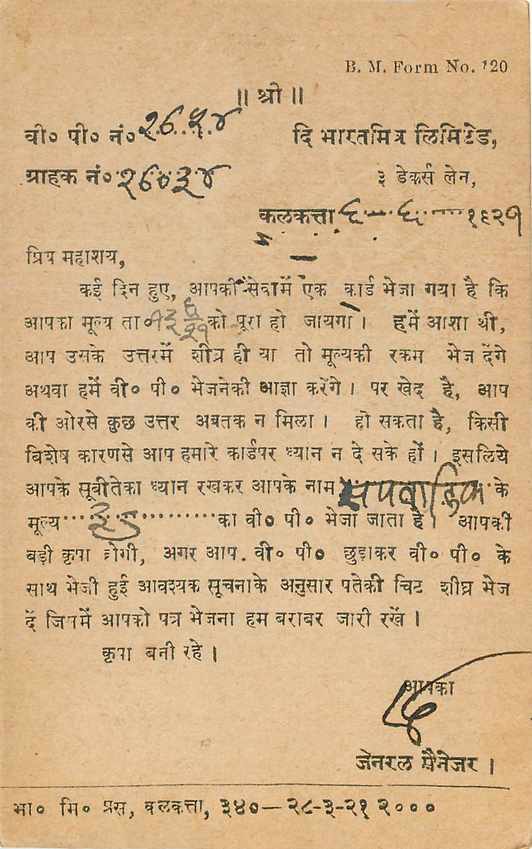 B. M. Form No. 120
॥ श्री ॥
वी० पी० नं० २६५४
दि भारतमित्र लिमिटेड,
ग्राहक नं० २६०३४
३ डेकर्स लेन,
कलकत्ता ६ ६ १९२१
प्रिय महाशय,
कई दिन हुए, आपकी सेवामें एक कार्ड भेजा गया है कि
आपका मूल्य ता० को पूरा हो जायगा। हमें आशा थी,
आप उसके उत्तरमें शीघ्र ही या तो मूल्यकी रकम भेज देंगे
अथवा हमें वी० पी० भेजनेकी आज्ञा करेंगे। पर खेद है, आप
की ओरसे कुछ उत्तर अबतक न मिला। हो सकता है, किसी
विशेष कारणसे आप हमारे कार्डपर ध्यान न दे सके हों। इसलिये
आपके सूबीतेका ध्यान रखकर आपके नाम के
मूल्य का वी० पी० भेजा जाता है। आपकी
बड़ी कृपा होगी, अगर आप वी० पी० छुड़ाकर वी० पी० के
साथ भेजी हुई आवश्यक सूचनाके अनुसार पतेकी चिट शीघ्र भेज
दें जिसमें आपको पत्र भेजना हम बराबर जारी रखें।
कृपा बनी रहे।
आपका
जेनरल मैनेजर।
भा० मि० प्रेस, कलकत्ता, ३४०—२८-३-२१ २०००